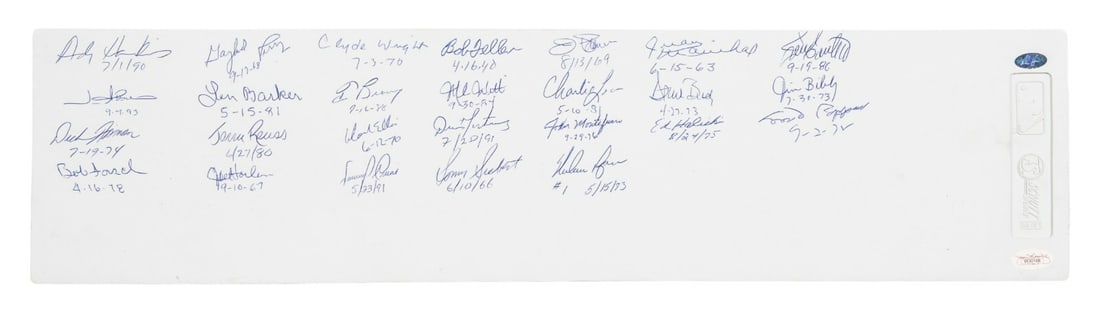 Andy Hawkins Gaylord Perry Clyde Wright Bob Feller Juan Marichal
7/1/90 9-17-68 7-3-70 4-16-40 8/13/69 6-15-63 9-19-86
Len Barker Mike Witt Jim Bibby
9-4-93 5-15-81 9-30-84 5-10-81 4-27-73 7-30-73
Dick Bosman Jerry Reuss Dock Ellis Dennis Martinez John Montefusco Ed Halicki
7-19-74 6/27/80 6-12-70 7/28/91 9-29-76 8/24/75 9-2-72
Bob Forsch Joe Horlen Sonny Siebert Nolan Ryan
4-16-78 9-10-67 5/23/91 6/10/66 #1 5/15/73